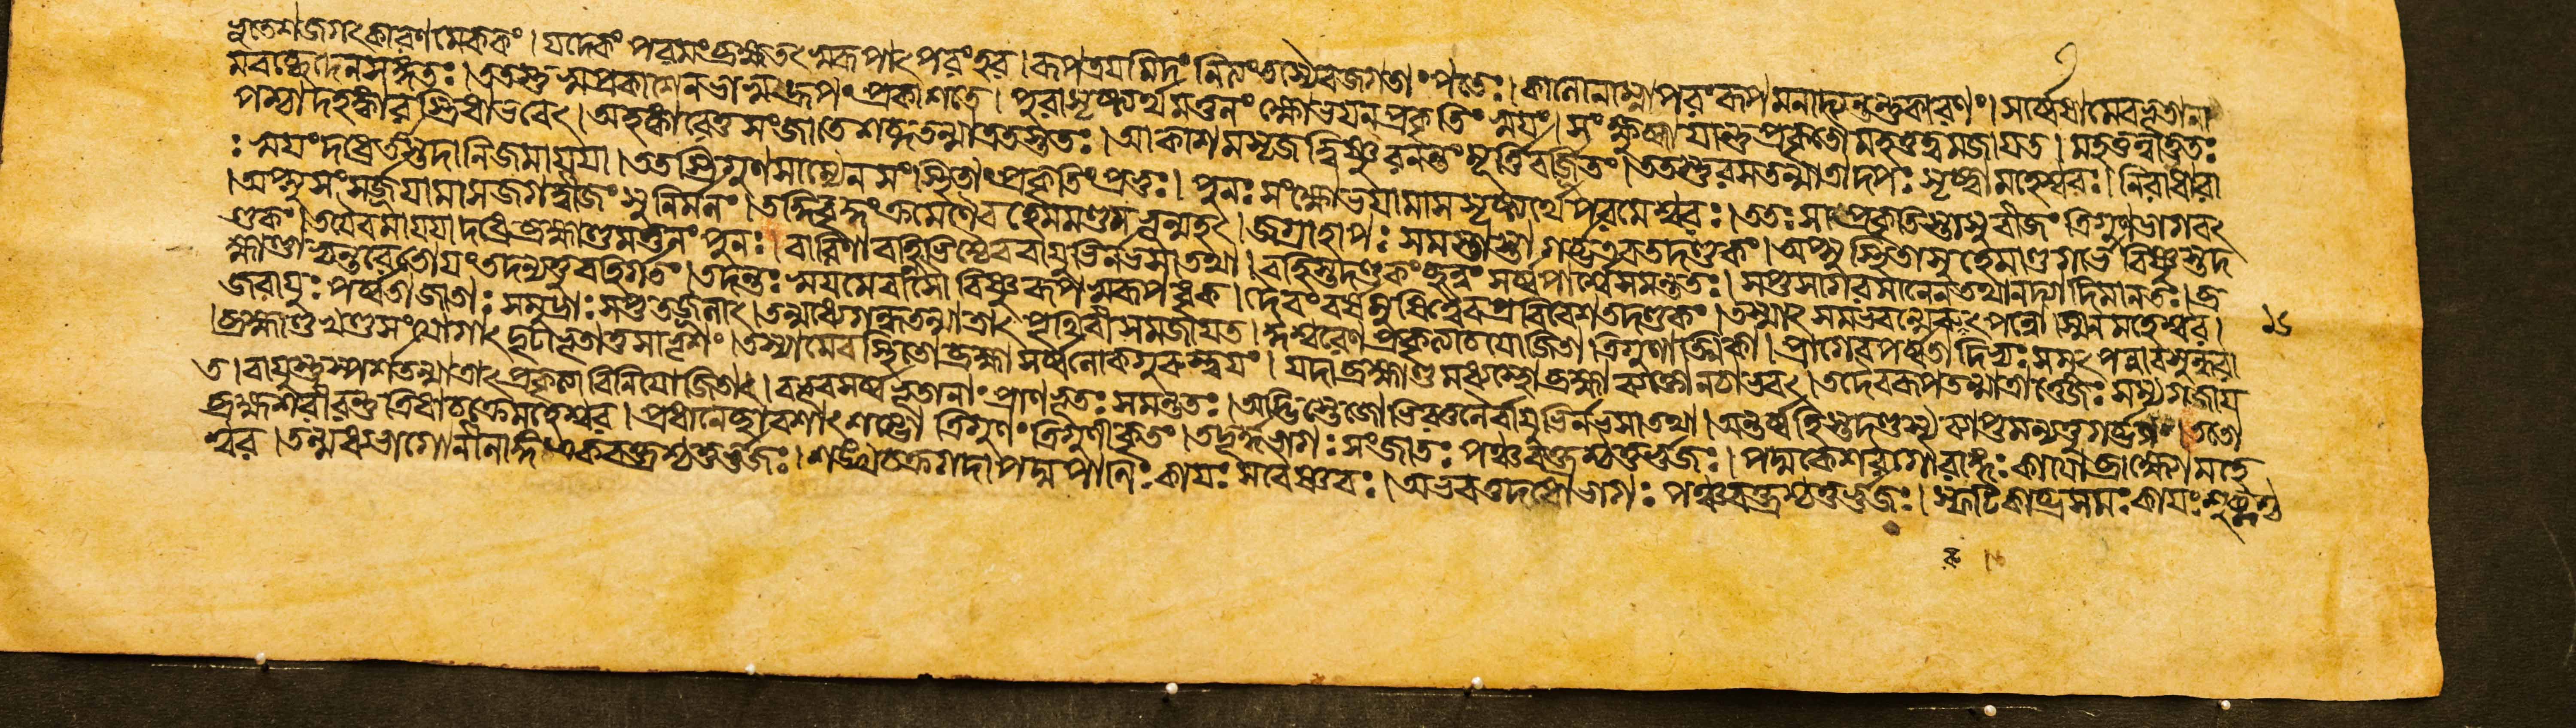 ভূতেশজগৎকারণমেককং।যদেকং পরমংব্রহ্মতৎস্বরূপাৎপরংহর।রূপত্রয়মিদং নিত্যংতস্যৈবজগতাং পতেঃ।কালোনাম্নাপরংরূপমনাদ্যন্তন্তুকারণং।সর্ব্বেষামেবভূতানা
মবচ্ছেদেনসঙ্গতঃ।ততস্তুস্বপ্রকাশেনভাস্বদ্রূপং প্রকাশতে। পুরাসৃষ্ট্যর্থমতুলং ক্ষোভয়নপ্রকৃতিং স্বয়ং।সংক্ষুব্ধায়ান্তুপ্রকৃতৌ মহত্তত্ত্বমজায়ত। মহত্তত্ত্বাত্ততঃ
পশ্চাদহঙ্কারস্ত্রিধাভবেৎ।অহঙ্কারেতুসংজাতেশব্দতন্মাত্রতস্ততঃ। আকাশমসৃজদ্বিষ্ণুরনন্তংমূর্ত্তিবর্জ্জিতং।ততস্তুরসতন্মাত্রাদপঃ সৃষ্ট্বামহেশ্বরঃ।নিরাধারা
ঃ স্বয়ংদধ্রেতাস্তুদানিজমায়য়া।ততস্ত্রিগুণসাম্যেনসংস্থিতাংপ্রকৃতিংপ্রভুঃ। পুনঃ সংক্ষোভয়ামাসসৃষ্ট্যর্থে পরমেশ্বরঃ।ততঃ সাপ্রকৃতিস্তাসুবীজং ত্রিগুণভাগবৎ
।অপ্সুসংসর্জ্জয়ামাসজগদ্বীজংসুনির্মলং।তদ্ধিবৃদ্ধংক্রমেণৈবহৈমমণ্ডমভূন্মহৎ।জগ্রাহাপঃ সমস্তাস্তাগর্ভ্ভএবতদণ্ডকং।অপ্সুস্থিতাসুহেমাণ্ডগর্ভেবিষ্ণুস্তদ
ণ্ডকং।তথৈবমায়য়াদধ্রেব্রহ্মাণ্ডমতুলং পুনঃ।বারিণাবহ্নিভিশ্চৈববায়ুভির্নভসাতথা।বহিস্তদণ্ডকংছন্নং সর্ব্বপার্শ্বেসমন্ততঃ।সপ্তসাগরমানেনতথানদ্যাদিমানতঃ।ব্র
হ্মাণ্ডাভ্যন্তরেতোয়ংতদন্যত্তুবহির্গতং।তদন্তঃ স্বয়মেবাসৌ বিষ্ণুরূপস্বরূপধৃক।দৈবংবর্ষমুষিত্বৈবপ্রবিবেশতদণ্ডকং।তস্মাৎ সমভবন্মেরুরুৎপন্নো।স্মিনমহেশ্বর।
জরায়ুঃ পর্ব্বতাজাতাঃ সমুদ্রাঃ সপ্ততজ্জলাৎ।তন্মধ্যেগন্ধতন্মাত্রাৎ পৃথিবীসমজায়ত।ঈশ্বরেণ প্রকৃত্যাচযোজিতা ত্রিগুণাত্মিকা।প্রাগেবপর্ব্বতাদিভ্যঃ সমুৎপন্নাবসুন্ধরা
।ব্রহ্মাণ্ডখণ্ডসংযোগাৎদৃঢ়ীভূতাতুসাভৃশং।তস্যামেবস্থিতোব্রহ্মা সর্ব্বলোকগুরুস্বয়ং। যদাব্রহ্মাণ্ডমধ্যস্থোব্রহ্মাব্যক্তোনচাভবৎ।তদৈবরূপতন্মাত্রাত্তেজঃ সম্যগজায়
ত।বায়ুস্তুস্পর্শতন্মাত্রাৎপ্রকৃত্যাবিনিযোজিতাৎ।বভূবসর্ব্বভূতানাং প্রাণভূতঃ সমন্ততঃ।অদ্ভিস্তেজোভিরতুলৈর্বায়ুভির্নভসাতথা।অন্তর্ব্বহিস্তদণ্ডস্য ব্যাপ্তমন্যত্তুগর্ভগং।ততো
ব্রহ্মশরীরন্তুত্রিধাচক্রেমহেশ্বর।প্রধানেচ্ছাবশাৎশম্ভো ত্রিগুণং ত্রিগুণীকৃতং।তদূর্দ্ধভাগঃ সংজাতঃ পঞ্চবক্ত্রশ্চতুর্ভুজঃ।পদ্মকেশরগৌরাঙ্গঃ কায়োব্রাহ্মো মহে
শ্বর।তন্মধ্যভাগোনীলাঙ্গ একবক্ত্রশ্চতুর্ভুজঃ।শঙ্খচক্রগদাপদ্মপাণিঃ কায়ঃ সবৈষ্ণবঃ।অভবত্তদধোভাগঃ পঞ্চবক্ত্রশ্চতুর্ভুজঃ।স্ফটিকাভ্রসমঃ কায়ঃ শুক্লশ্চ
১৬